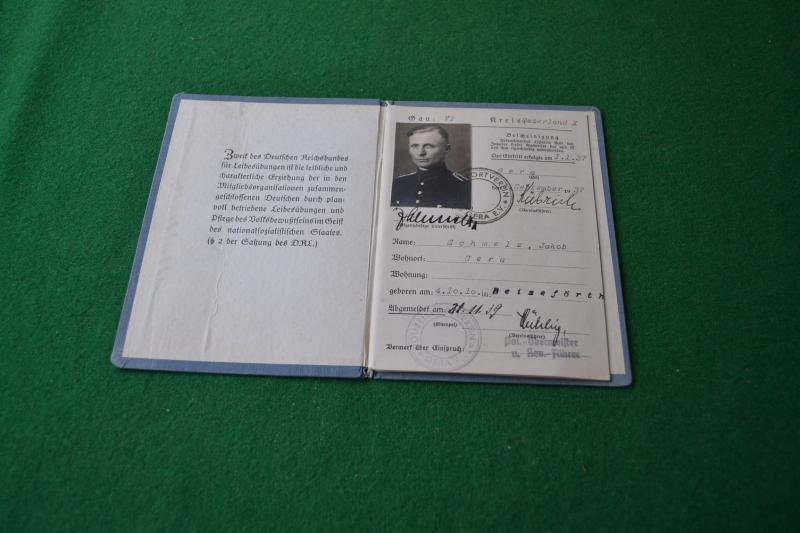 Zweck des Deutschen Reichsbundes
für Leibesübungen ist die leibliche und
charakterliche Erziehung der in den
Mitgliedsorganisationen zusammen-
geschlossenen Deutschen durch plan-
voll betriebene Leibesübungen und
Pflege des Volksbewußtseins im Geist
des nationalsozialistischen Staates.
(§ 2 der Satzung des DRL.)
Gau: VI Kreis
Bescheinigung
Der Eintritt erfolgte am
Gera
(Vereinsführer)
SPORTVEREIN GERA E.V.
(Eigenhändige Unterschrift)
Name: Schmelz, Jakob
Wohnort: Gera
Wohnung:
geboren am: 4.10.10 in: Beiseförth
Abgemeldet am: 30.11.39
(Stempel)
(Vereinsführer)
Vermerk über Einspruch:
Pol.-Obermeister
u. Rev.-Führer